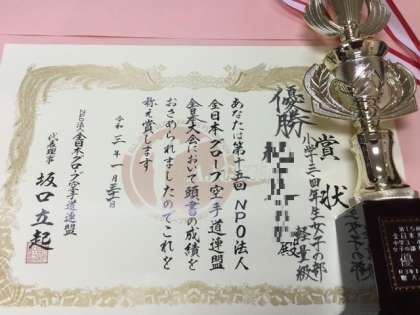 賞状
小学三四年生女子の部
軽量級
優勝
殿
あなたは第十五回NPO法人
全日本グローブ空手道連盟
全日本大会において頭書の成績を
おさめられましたのでこれを
称え賞します
令和三年一月三十一日
NPO法人全日本グローブ空手道連盟
代表理事 坂口立起
第15回
全日本
優